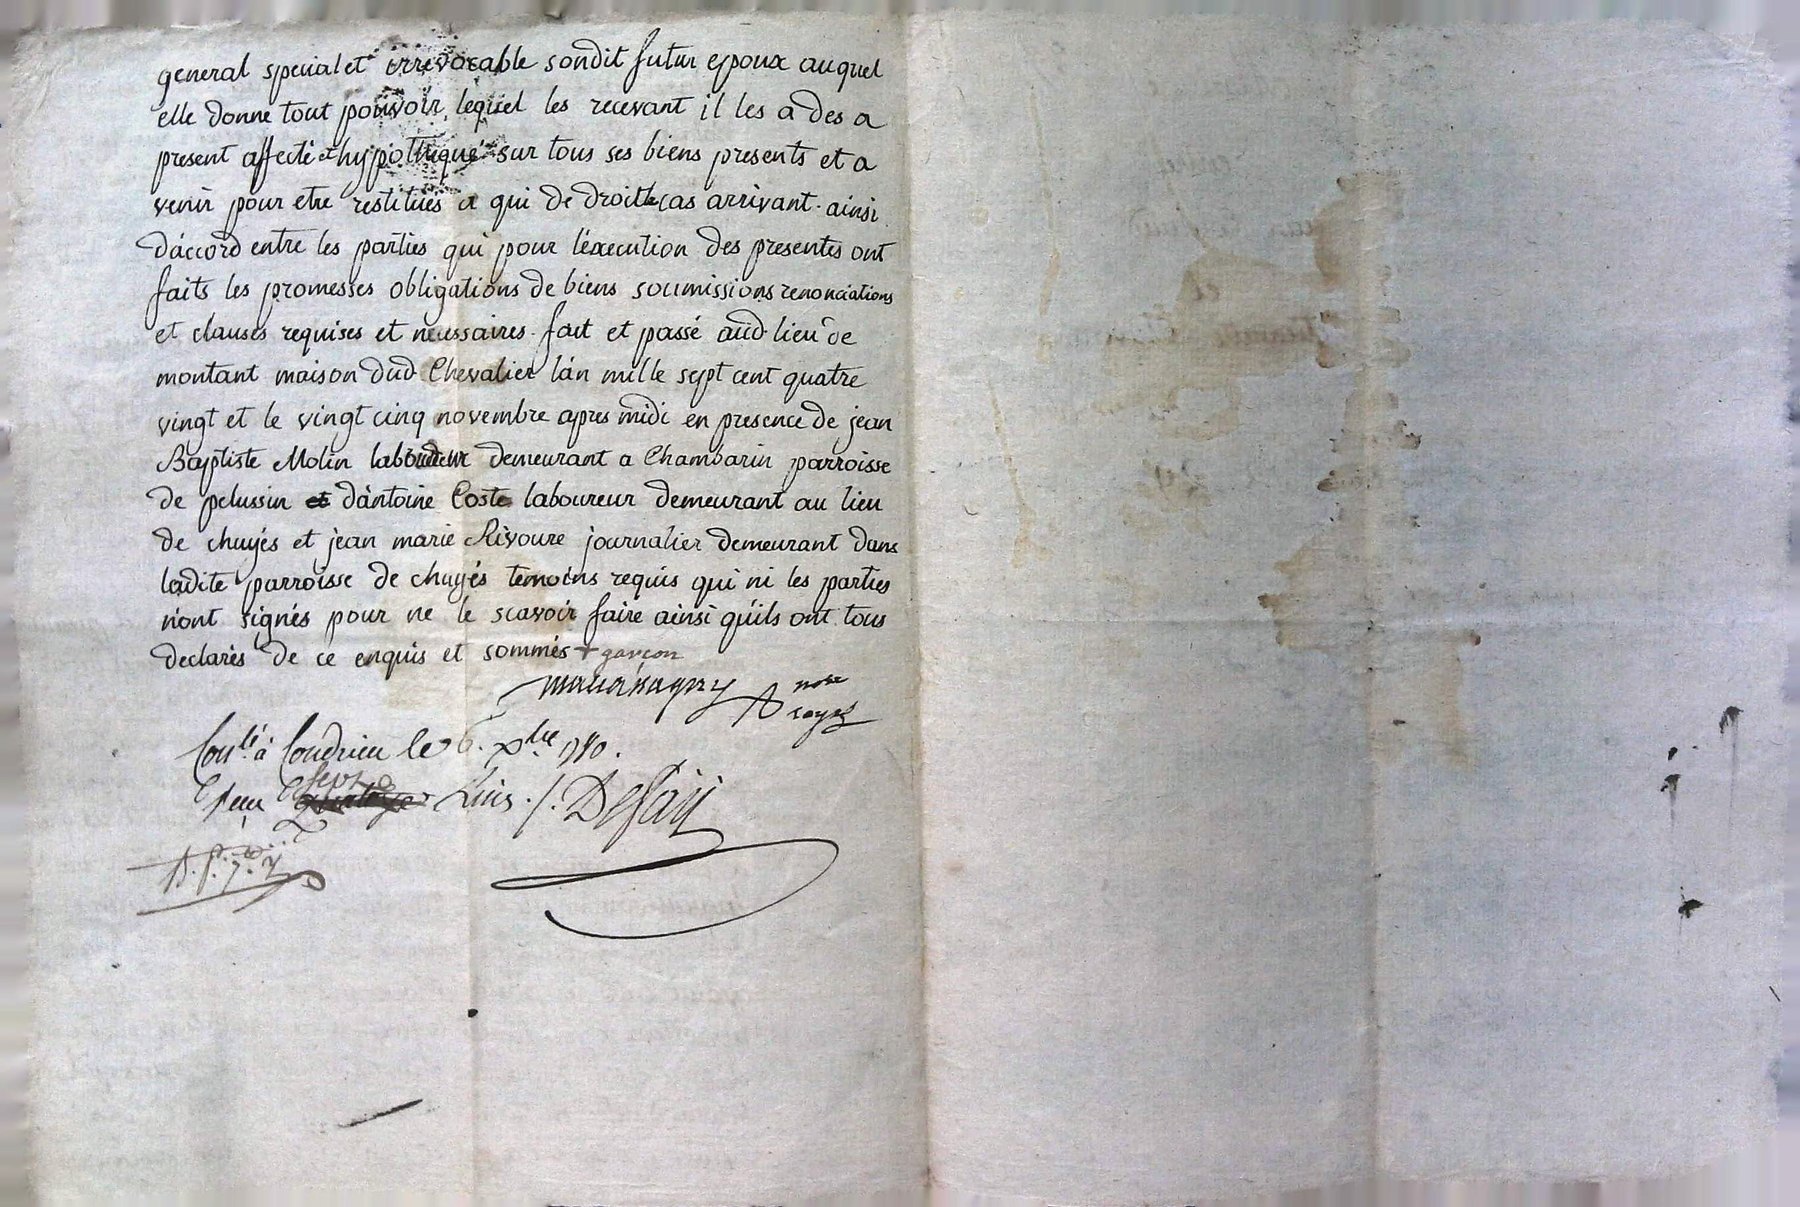 general special et irrevocable sondit futur epoux auquel
elle donne tout pouvoir, lequel les recevant il les a des a
present affecté et hypothequé sur tous ses biens presents et a
venir pour etre restitués a qui de droit le cas arrivant. ainsi
d'accord entre les parties qui pour l'éxecution des presentes ont
faits les promesses obligations de biens soumissions renonciations
et clauses requises et necessaires. fait et passé aud. lieu de
montant maison dud. Chevalier l'an mille sept cent quatre
vingt et le vingt cinq novembre apres midi en presence de jean
Baptiste Molin laboureur demeurant a Chambarin parroisse
de pelussin et d'antoine Coste laboureur demeurant au lieu
de chuyés et jean marie Rivoure journalier demeurant dans
ladite parroisse de chuyés temoins requis qui ni les parties
n'ont signés pour ne le scavoir faire ainsi qu'ils ont tous
declarés de ce enquis et sommés + garcon
nore
royal
Conlé a Condrieu le 6. xbre 1780.
Livs. /. Defay